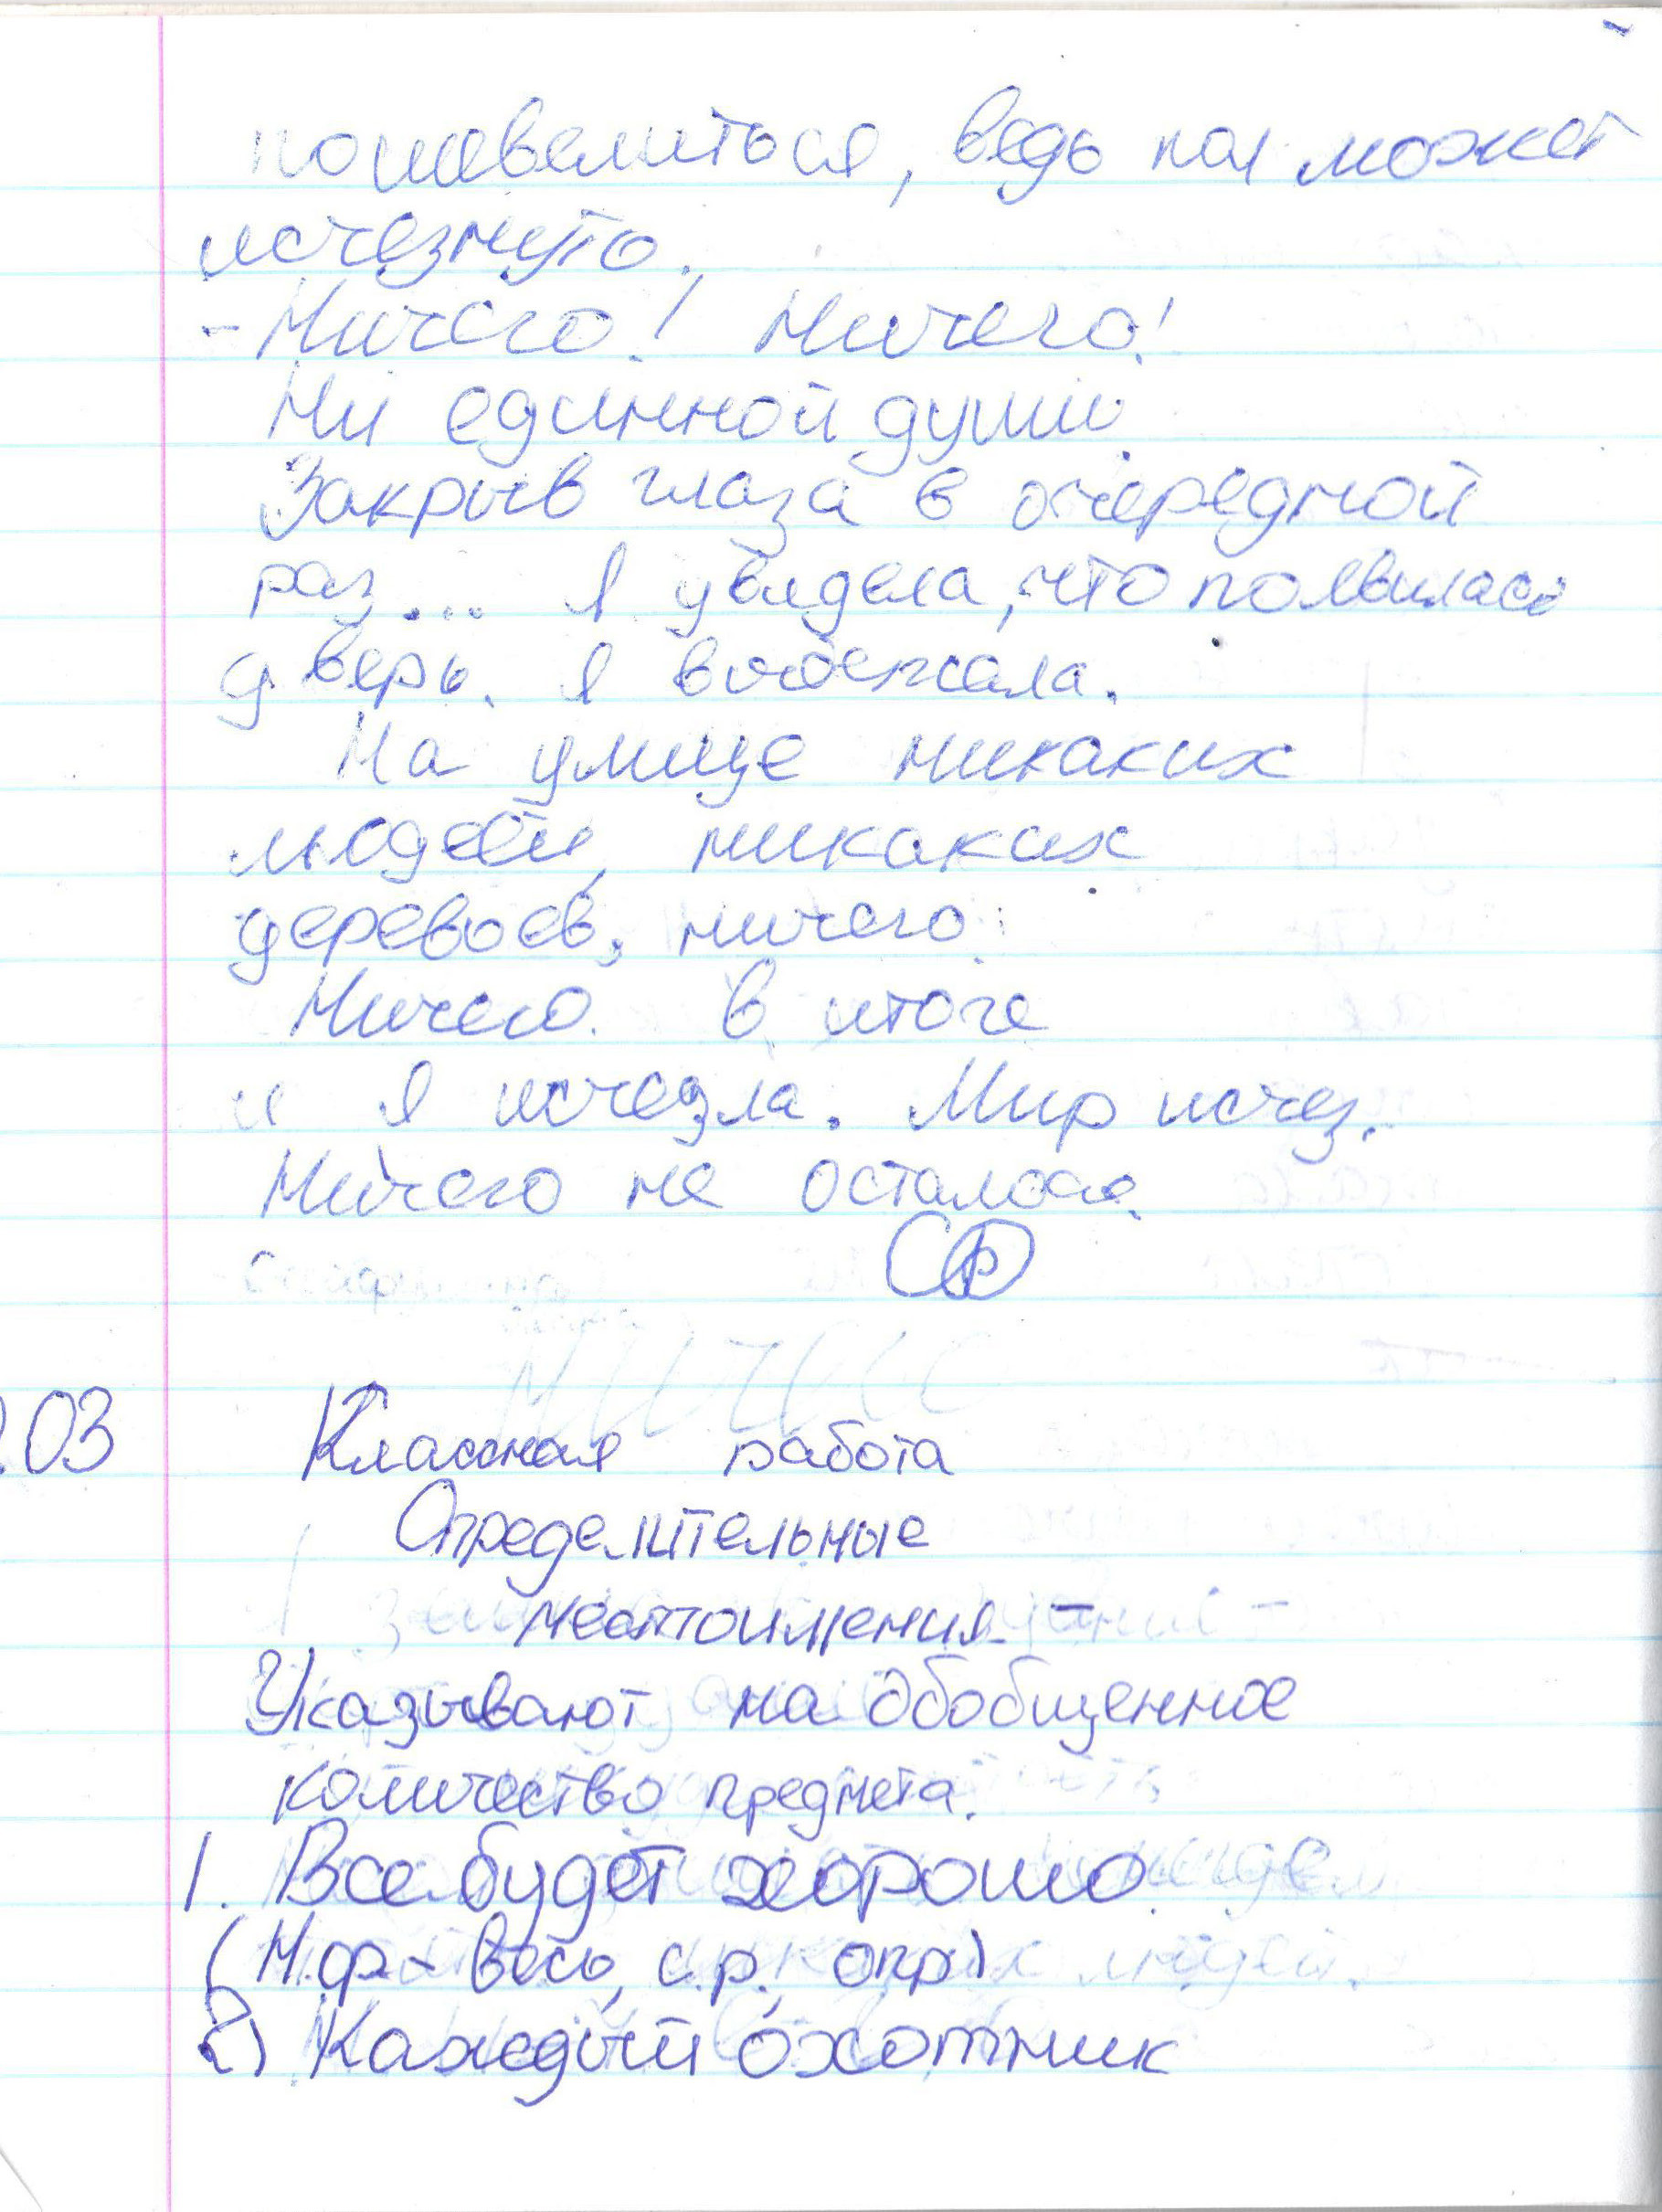 пошевелиться, ведь пол может
исчезнуть.
- Ничего! Ничего!
Ни единной души.
Закрыв глаза в очередной
раз... Я увидела, что появилась
дверь. Я выбежала.
На улице никаких
людей, никаких
деревьев, ничего.
Ничего. В итоге
и я исчезла. Мир исчез.
Ничего не осталось.
.03 Классная работа
Определительные
местоимения -
Указывают на обобщенное
количество предмета.
1. Все будет хорошо.
(Н.ф - весь, с.р., опр)
2) Каждый охотник